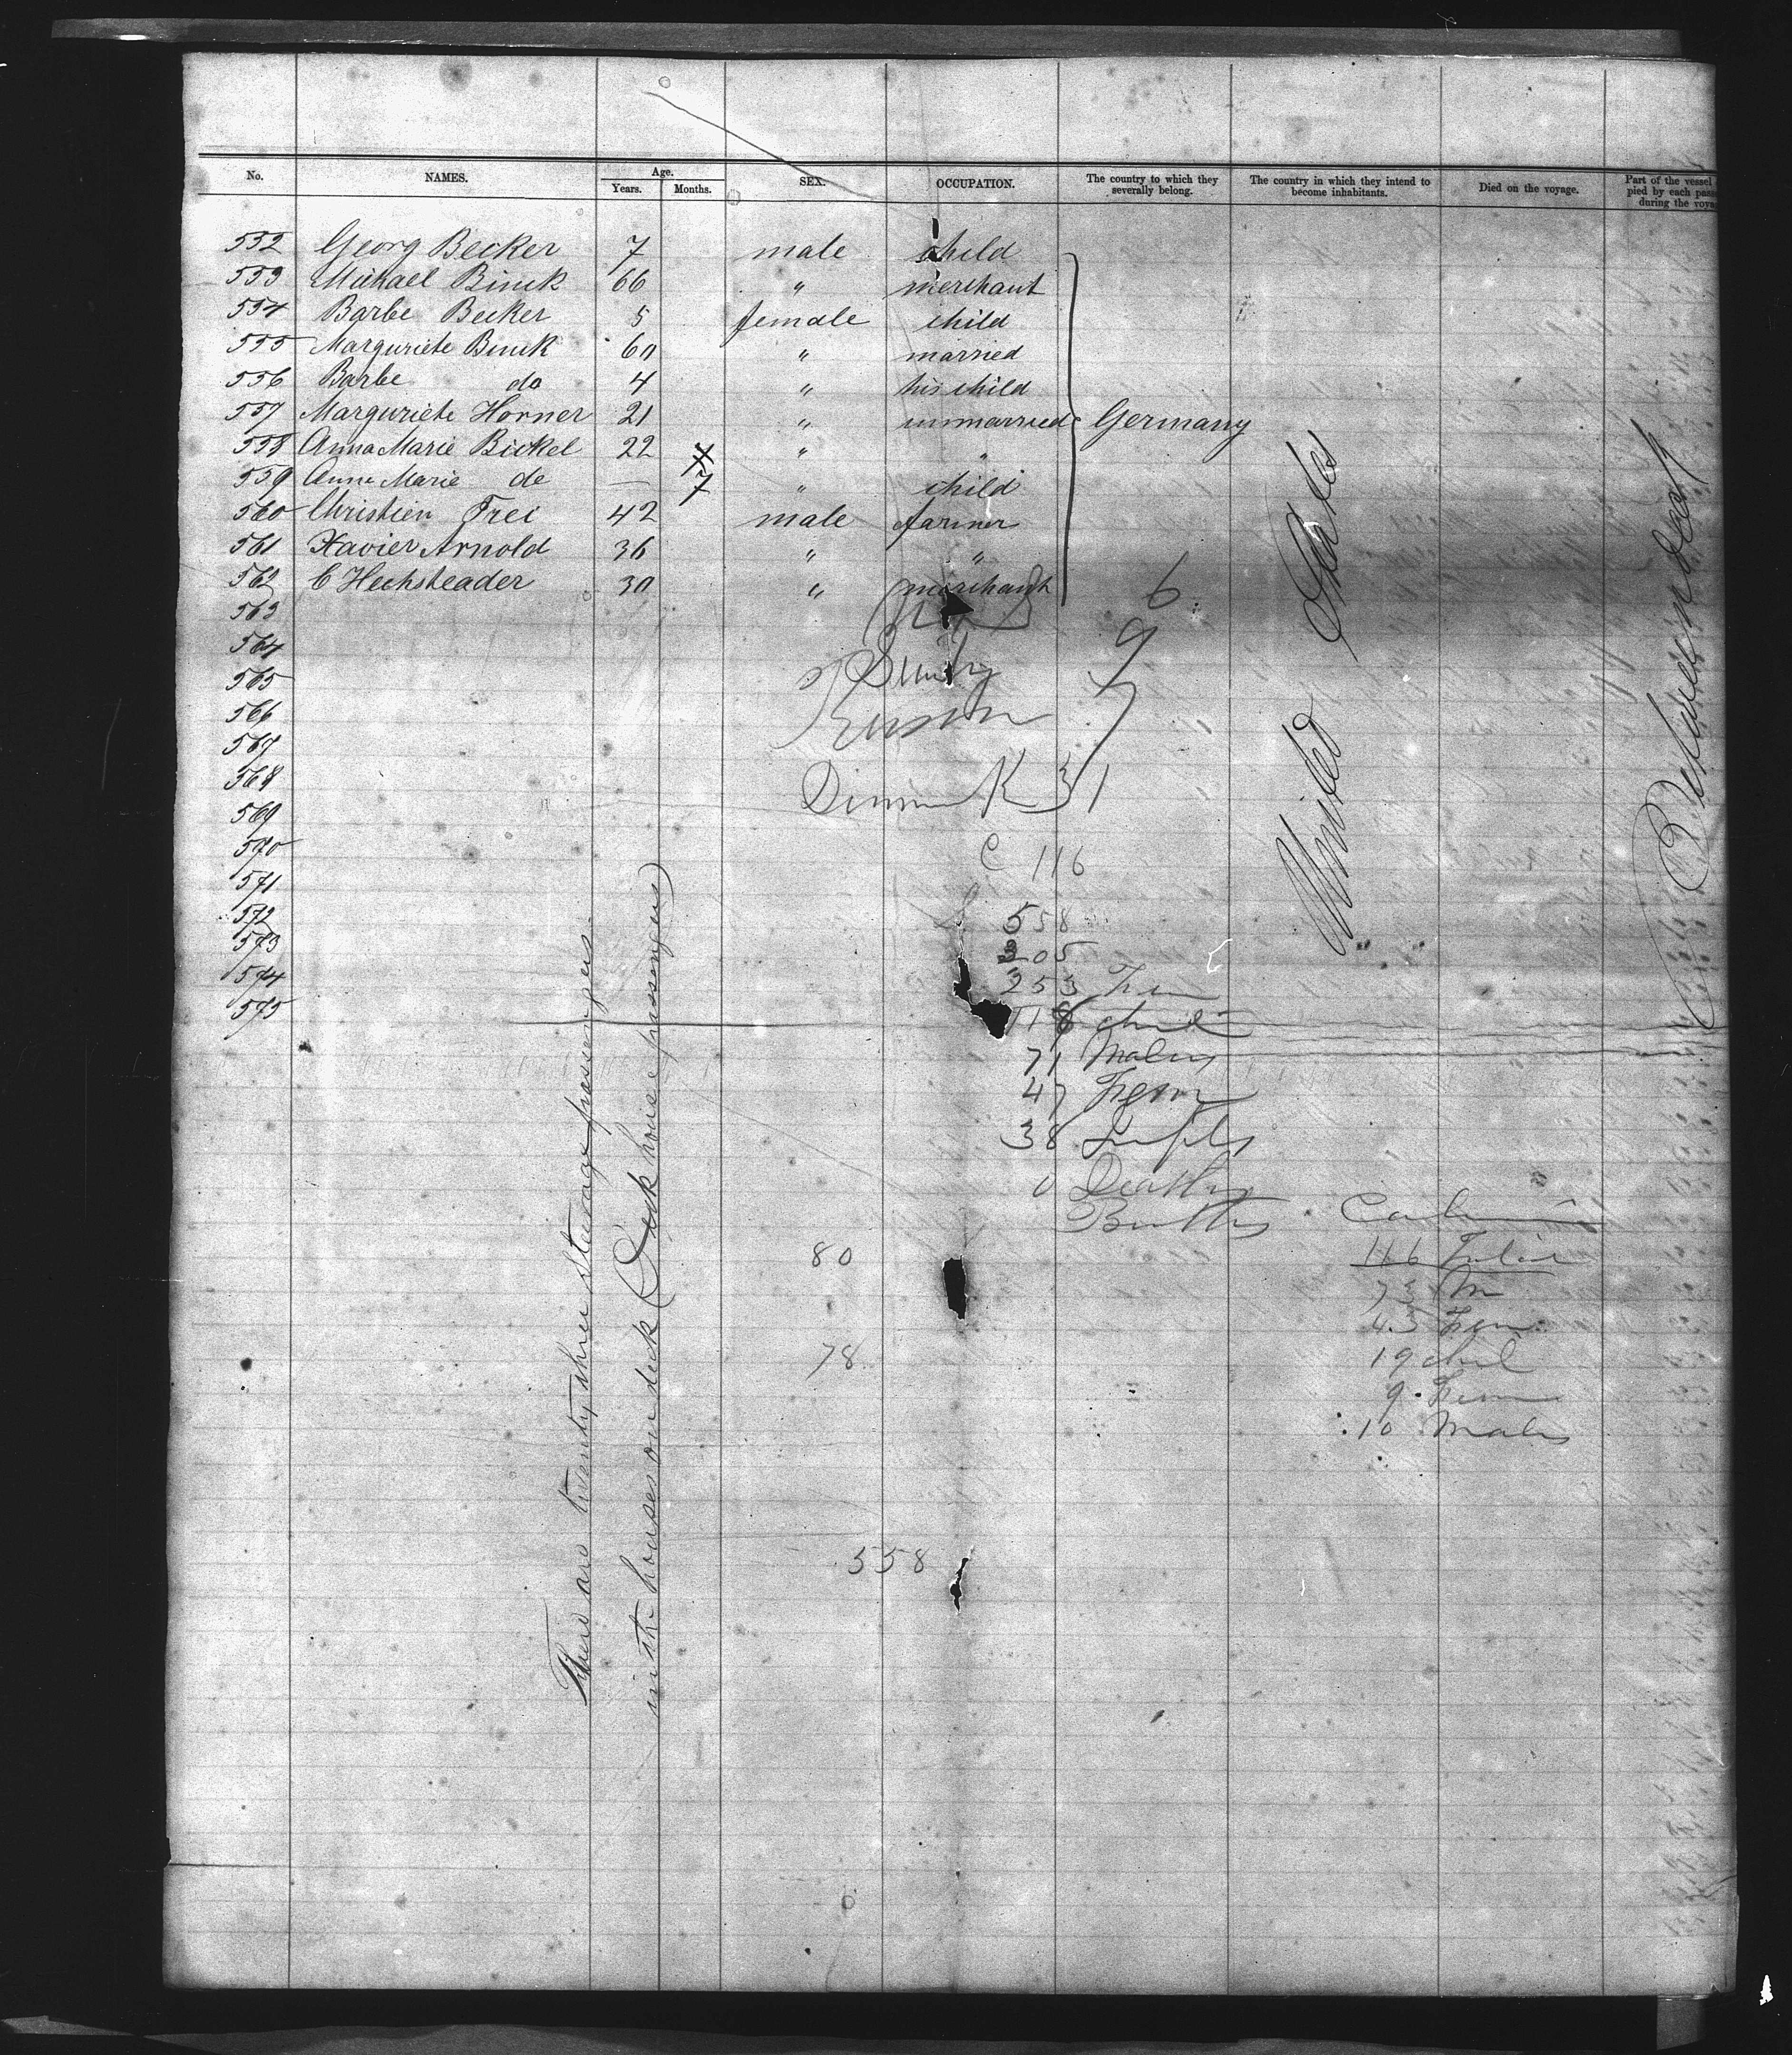 No. NAMES. Age. Years. Months. SEX. OCCUPATION. The country to which they severally belong. The country in which they intend to become inhabitants. Died on the voyage. Part of the vessel pied by each during the
552 Georg Becker 7 male child
553 Michael Binck 66 " merchant
554 Barbe Becker 5 female child
555 Marguriete Binck 60 " married
556 Barbe do 4 " his child
557 Marguriete Horner 21 " unmarried Germany
558 Anna Marie Bickel 22 " "
559 Anna Marie de — 7 " child
560 Christien Frei 42 male farmer
561 Xavier Arnold 36 " "
562 C Hechsteader 30 " merchant
United States
Between deck
563
564
565
566
567
568
569
570
571
572
573
574
575
6
9
7
31
C 116
558
305
253 Fem
118 chil
71 Males
47 Fem
38 Infts
0 Deaths
Births
80
78
558
116 Total
73 M
43 Fem
19 chil
9 Fem
10 Males
There are twenty three steerage passengers
in the houses on deck (Deck house passengers)